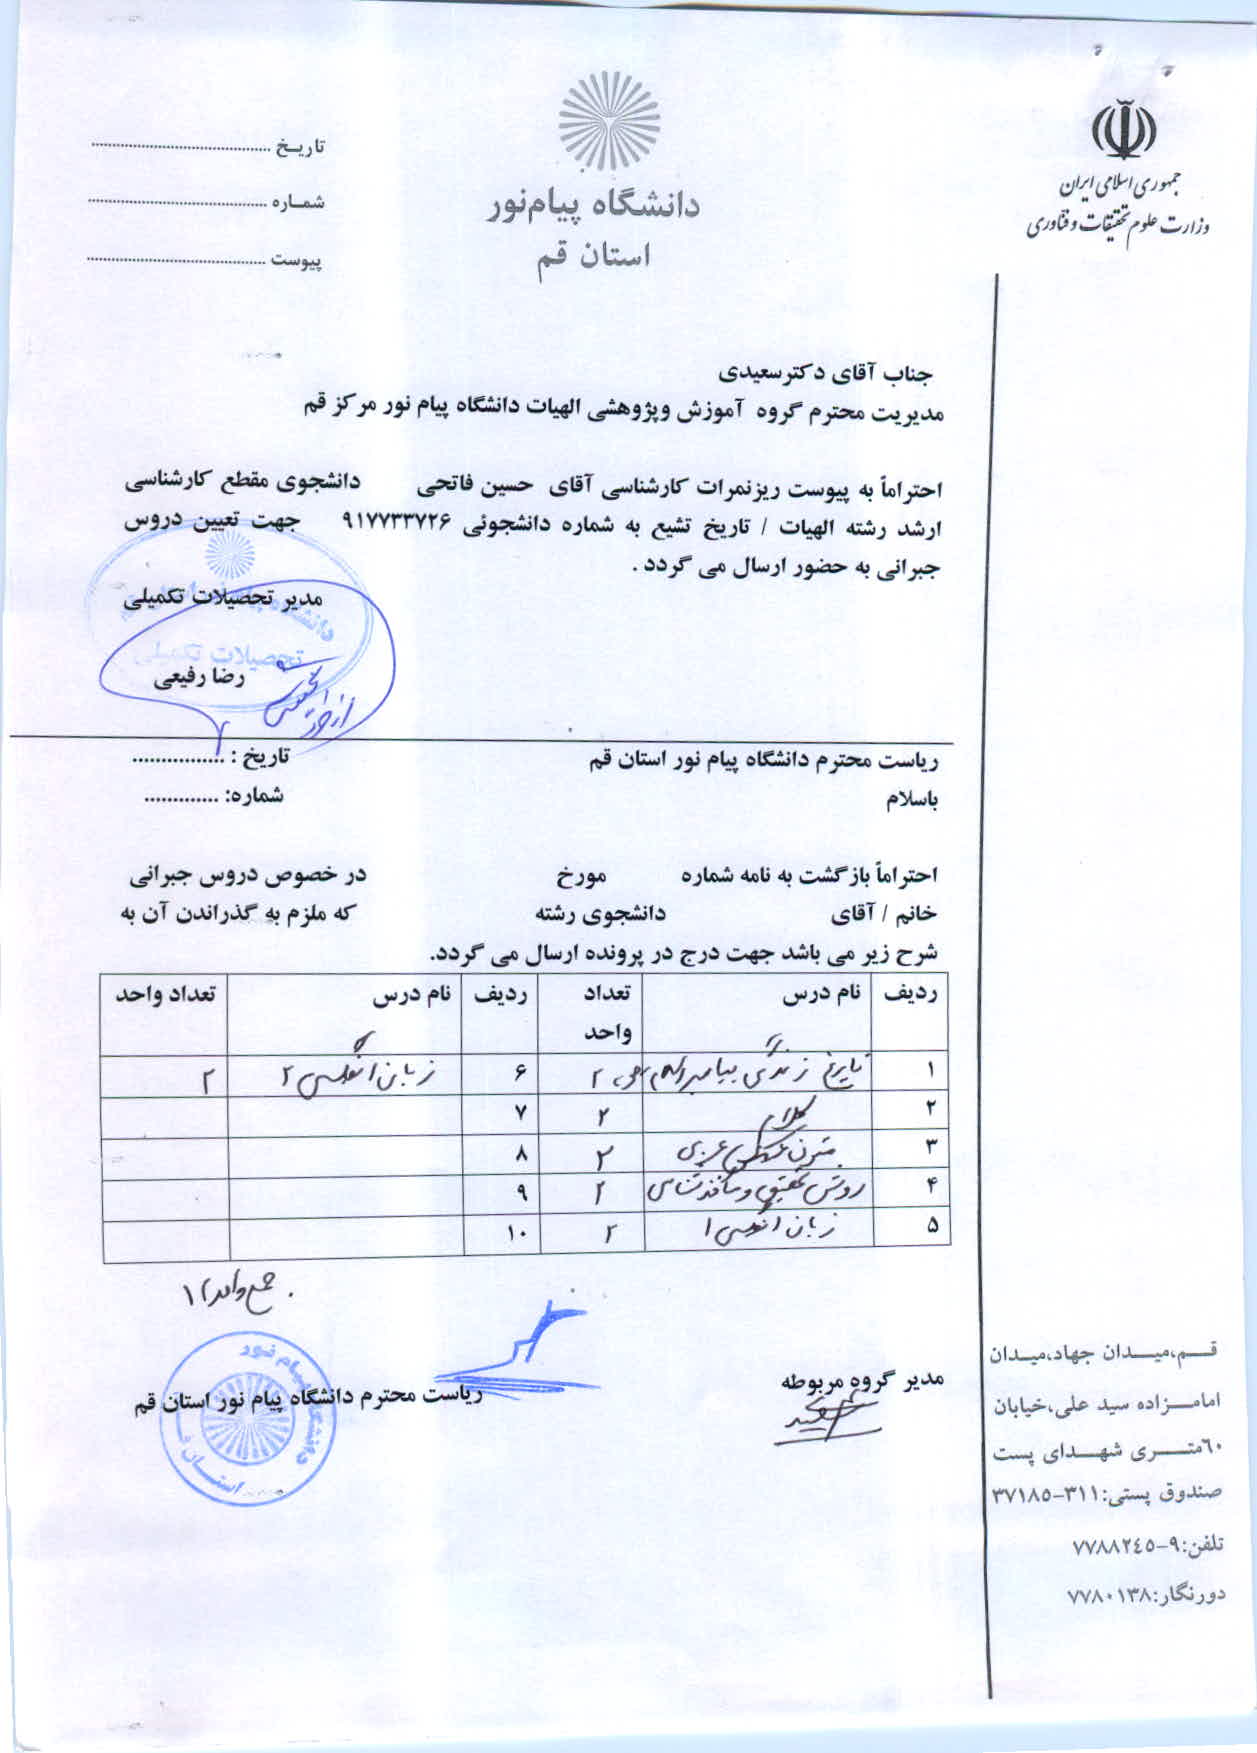 جمهوری اسلامی ایران
وزارت علوم تحقیقات و فناوری
دانشگاه پیام‌نور
استان قم
تاریـخ ........................................
شمـاره ........................................
پیوست ........................................
جناب آقای دکترسعیدی
مدیریت محترم گروه آموزش وپژوهشی الهیات دانشگاه پیام نور مرکز قم
احتراماً به پیوست ریزنمرات کارشناسی آقای حسین فاتحی دانشجوی مقطع کارشناسی
ارشد رشته الهیات / تاریخ تشیع به شماره دانشجوئی ۹۱۷۷۳۳۷۲۶ جهت تعیین دروس
جبرانی به حضور ارسال می گردد .
مدیر تحصیلات تکمیلی
تحصیلات تکمیلی
رضا رفیعی
ریاست محترم دانشگاه پیام نور استان قم
تاریخ : ................
باسلام
شماره: .............
احتراماً بازگشت به نامه شماره مورخ در خصوص دروس جبرانی
خانم / آقای دانشجوی رشته که ملزم به گذراندن آن به
شرح زیر می باشد جهت درج در پرونده ارسال می گردد.
ردیف نام درس تعداد واحد ردیف نام درس تعداد واحد
۱ تاریخ زندگی پیامبر ۲ ۶ زبان انگلیسی ۲ ۲
۲ کلام ۲ ۷
۳ متون عربی ۲ ۸
۴ روش تحقیق و مأخذشناسی ۲ ۹
۵ زبان انگلیسی ۱ ۲ ۱۰
جمع واحد
مدیر گروه مربوطه
ریاست محترم دانشگاه پیام نور استان قم
دانشگاه پیام نور
استان قم
قـــم،میـــدان جهاد،میـدان
امامـــزاده سید علی،خیابان
٦٠متـــری شهـــدای پست
صندوق پستی:٣١١-٣٧١٨٥
تلفن:٩-٧٧٨٨٢٤٥
دورنگار:٧٧٨٠١٣٨